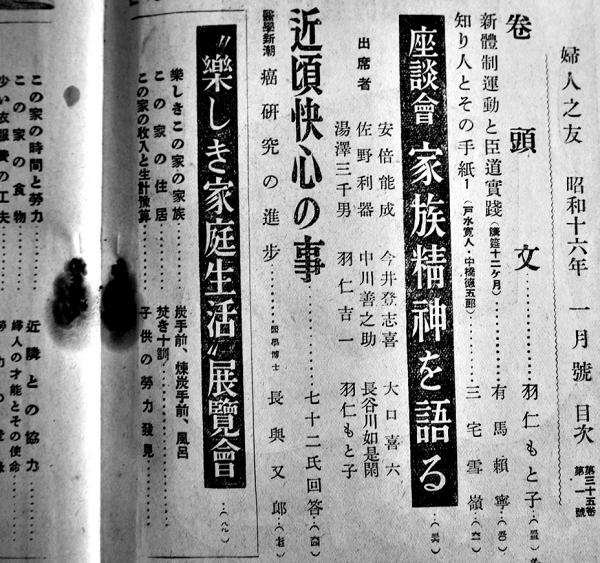 婦人之友 昭和十六年 一月號 目次 第三十五卷 第一號
卷頭文 羽仁もと子
新體制運動と臣道實踐 (講筵十二ヶ月) 有馬賴寧
知り人とその手紙1 (戸水寛人・中橋徳五郎) 三宅雪嶺
座談會 家族精神を語る
出席者
安倍能成 今井登志喜 大口喜六
佐野利器 中川善之助 長谷川如是閑
湯澤三千男 羽仁吉一 羽仁もと子
近頃快心の事 七十二氏回答
醫學新潮 癌研究の進步 醫學博士 長與又郎
〃樂しき家庭生活〃展覽會
樂しきこの家の家族
この家の住居
この家の收入と生計豫算
炭手前、煉炭手前、風呂
焚き十訓
子供の勞力發見
この家の時間と勞力
この家の食物
少い衣服費の工夫
近隣との協力
婦人の才能とその使命